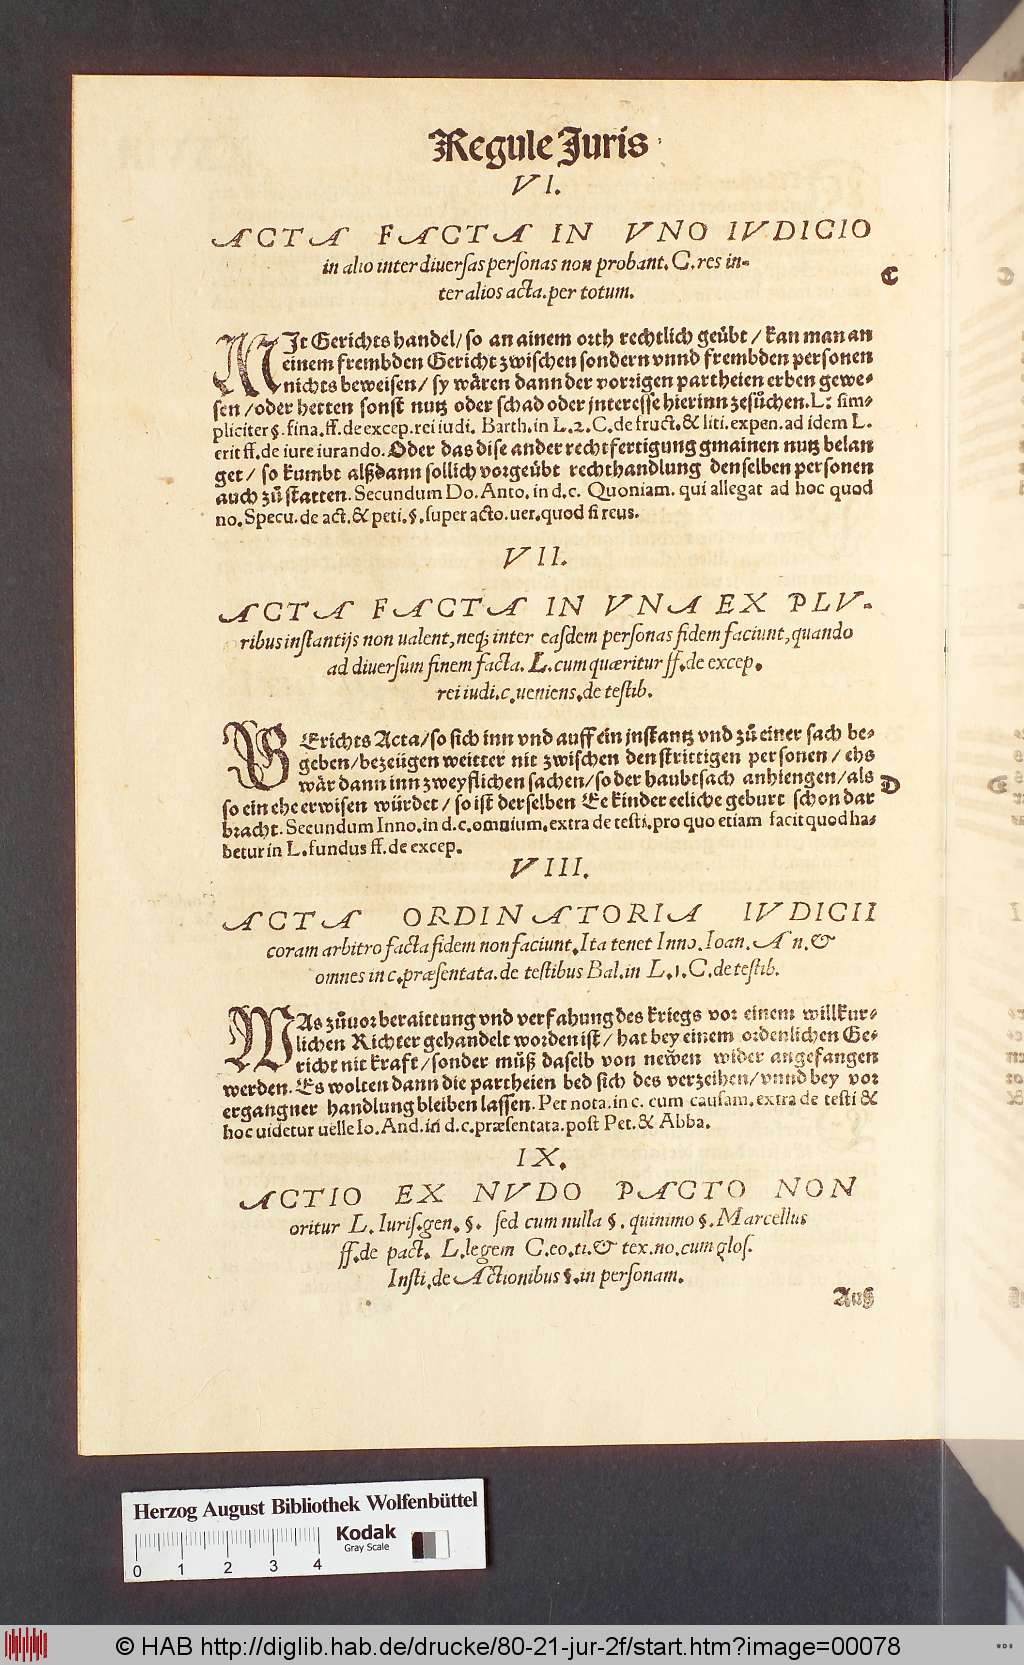 Regule Juris
VI.
ACTA FACTA IN VNO IVDICIO
in alio inter diuersas personas non probant. C. res in-
ter alios acta. per totum.
C
MJt Gerichts handel/ so an ainem orth rechtlich geübt/ kan man an
einem frembden Gericht zwischen sondern vnnd frembden personen
nichts beweisen/ sy wären dann der vorrigen partheien erben gewe-
sen/ oder hetten sonst nutz oder schad oder jnteresse hierinn zesůchen. L: sim-
pliciter §. fina. ff. de excep. rei iudi. Barth. in L. 2. C. de fruct. & liti. expen. ad idem L.
erit ff. de iure iurando. Oder das dise ander rechtfertigung gmainen nutz belan
get/ so kumbt alßdann sollich vorgeübt rechthandlung denselben personen
auch zů statten. Secundum Do. Anto. in d. c. Quoniam. qui allegat ad hoc quod
no. Specu. de act. & peti. §. super acto. uer. quod si reus.
VII.
ACTA FACTA IN VNA EX PLV-
ribus instantijs non ualent, neq; inter easdem personas fidem faciunt, quando
ad diuersum finem facta. L. cum quæritur ff. de excep.
rei iudi. c. ueniens. de testib.
GErichts Acta/ so sich inn vnd auff ein jnstantz vnd zů einer sach be-
geben/ bezeügen weitter nit zwischen den strittigen personen/ ehs
wär dann inn zweyflichen sachen/ so der haubtsach anhiengen/ als
D
so ein ehe erwisen würdet/ so ist derselben Ee kinder eeliche geburt schon dar
bracht. Secundum Inno. in d. c. omnium. extra de testi. pro quo etiam facit quod ha-
betur in L. fundus ff. de excep.
VIII.
ACTA ORDINATORIA IVDICII
coram arbitro facta fidem non faciunt. Ita tenet Inno. Ioan. An. &
omnes in c. præsentata. de testibus Bal. in L. 1. C. de testib.
WAs zůuor beraittung vnd verfahung des kriegs vor einem willkur-
lichen Richter gehandelt worden ist/ hat bey einem ordenlichen Ge-
richt nit kraft/ sonder můß daselb von newen wider angefangen
werden. Es wolten dann die partheien bed sich des verzeihen/ vnnd bey vor
ergangner handlung bleiben lassen. Per nota. in c. cum causam. extra de testi &
hoc uidetur uelle Io. And. in d. c. præsentata. post Pet. & Abba.
IX.
ACTIO EX NVDO PACTO NON
oritur L. Iuris. gen. §. sed cum nulla §. quinimo §. Marcellus
ff. de pact. L. legem C. eo. ti. & tex. no. cum glos.
Insti. de Actionibus §. in personam.
Auß
Herzog August Bibliothek Wolfenbüttel
Kodak
Gray Scale
0 1 2 3 4
© HAB http://diglib.hab.de/drucke/80-21-jur-2f/start.htm?image=00078